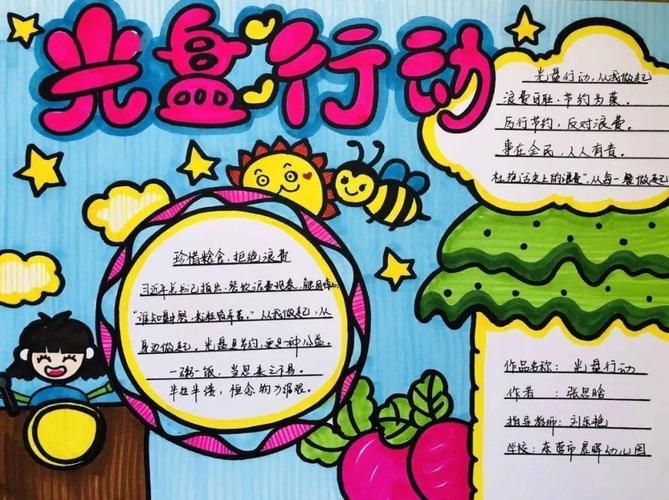 光盘行动
光盘行动,从我做起
浪费可耻,节约为荣。
厉行节约,反对浪费。
事在全民,人人有责。
杜绝"舌尖上的浪费",从每一餐做起
珍惜粮食,拒绝浪费
习近平总书记指出,餐饮浪费现象,触目惊心,
"谁知盘中餐,粒粒皆辛苦。"从我做起,从
身边做起。光盘是节约,更是一种公益。
一粥一饭,当思来之不易。
半丝半缕,恒念物力维艰。
作品名称: 光盘行动
作者 : 张思晗
指导教师: 刘乐艳
学校: 东营市晨晖幼儿园